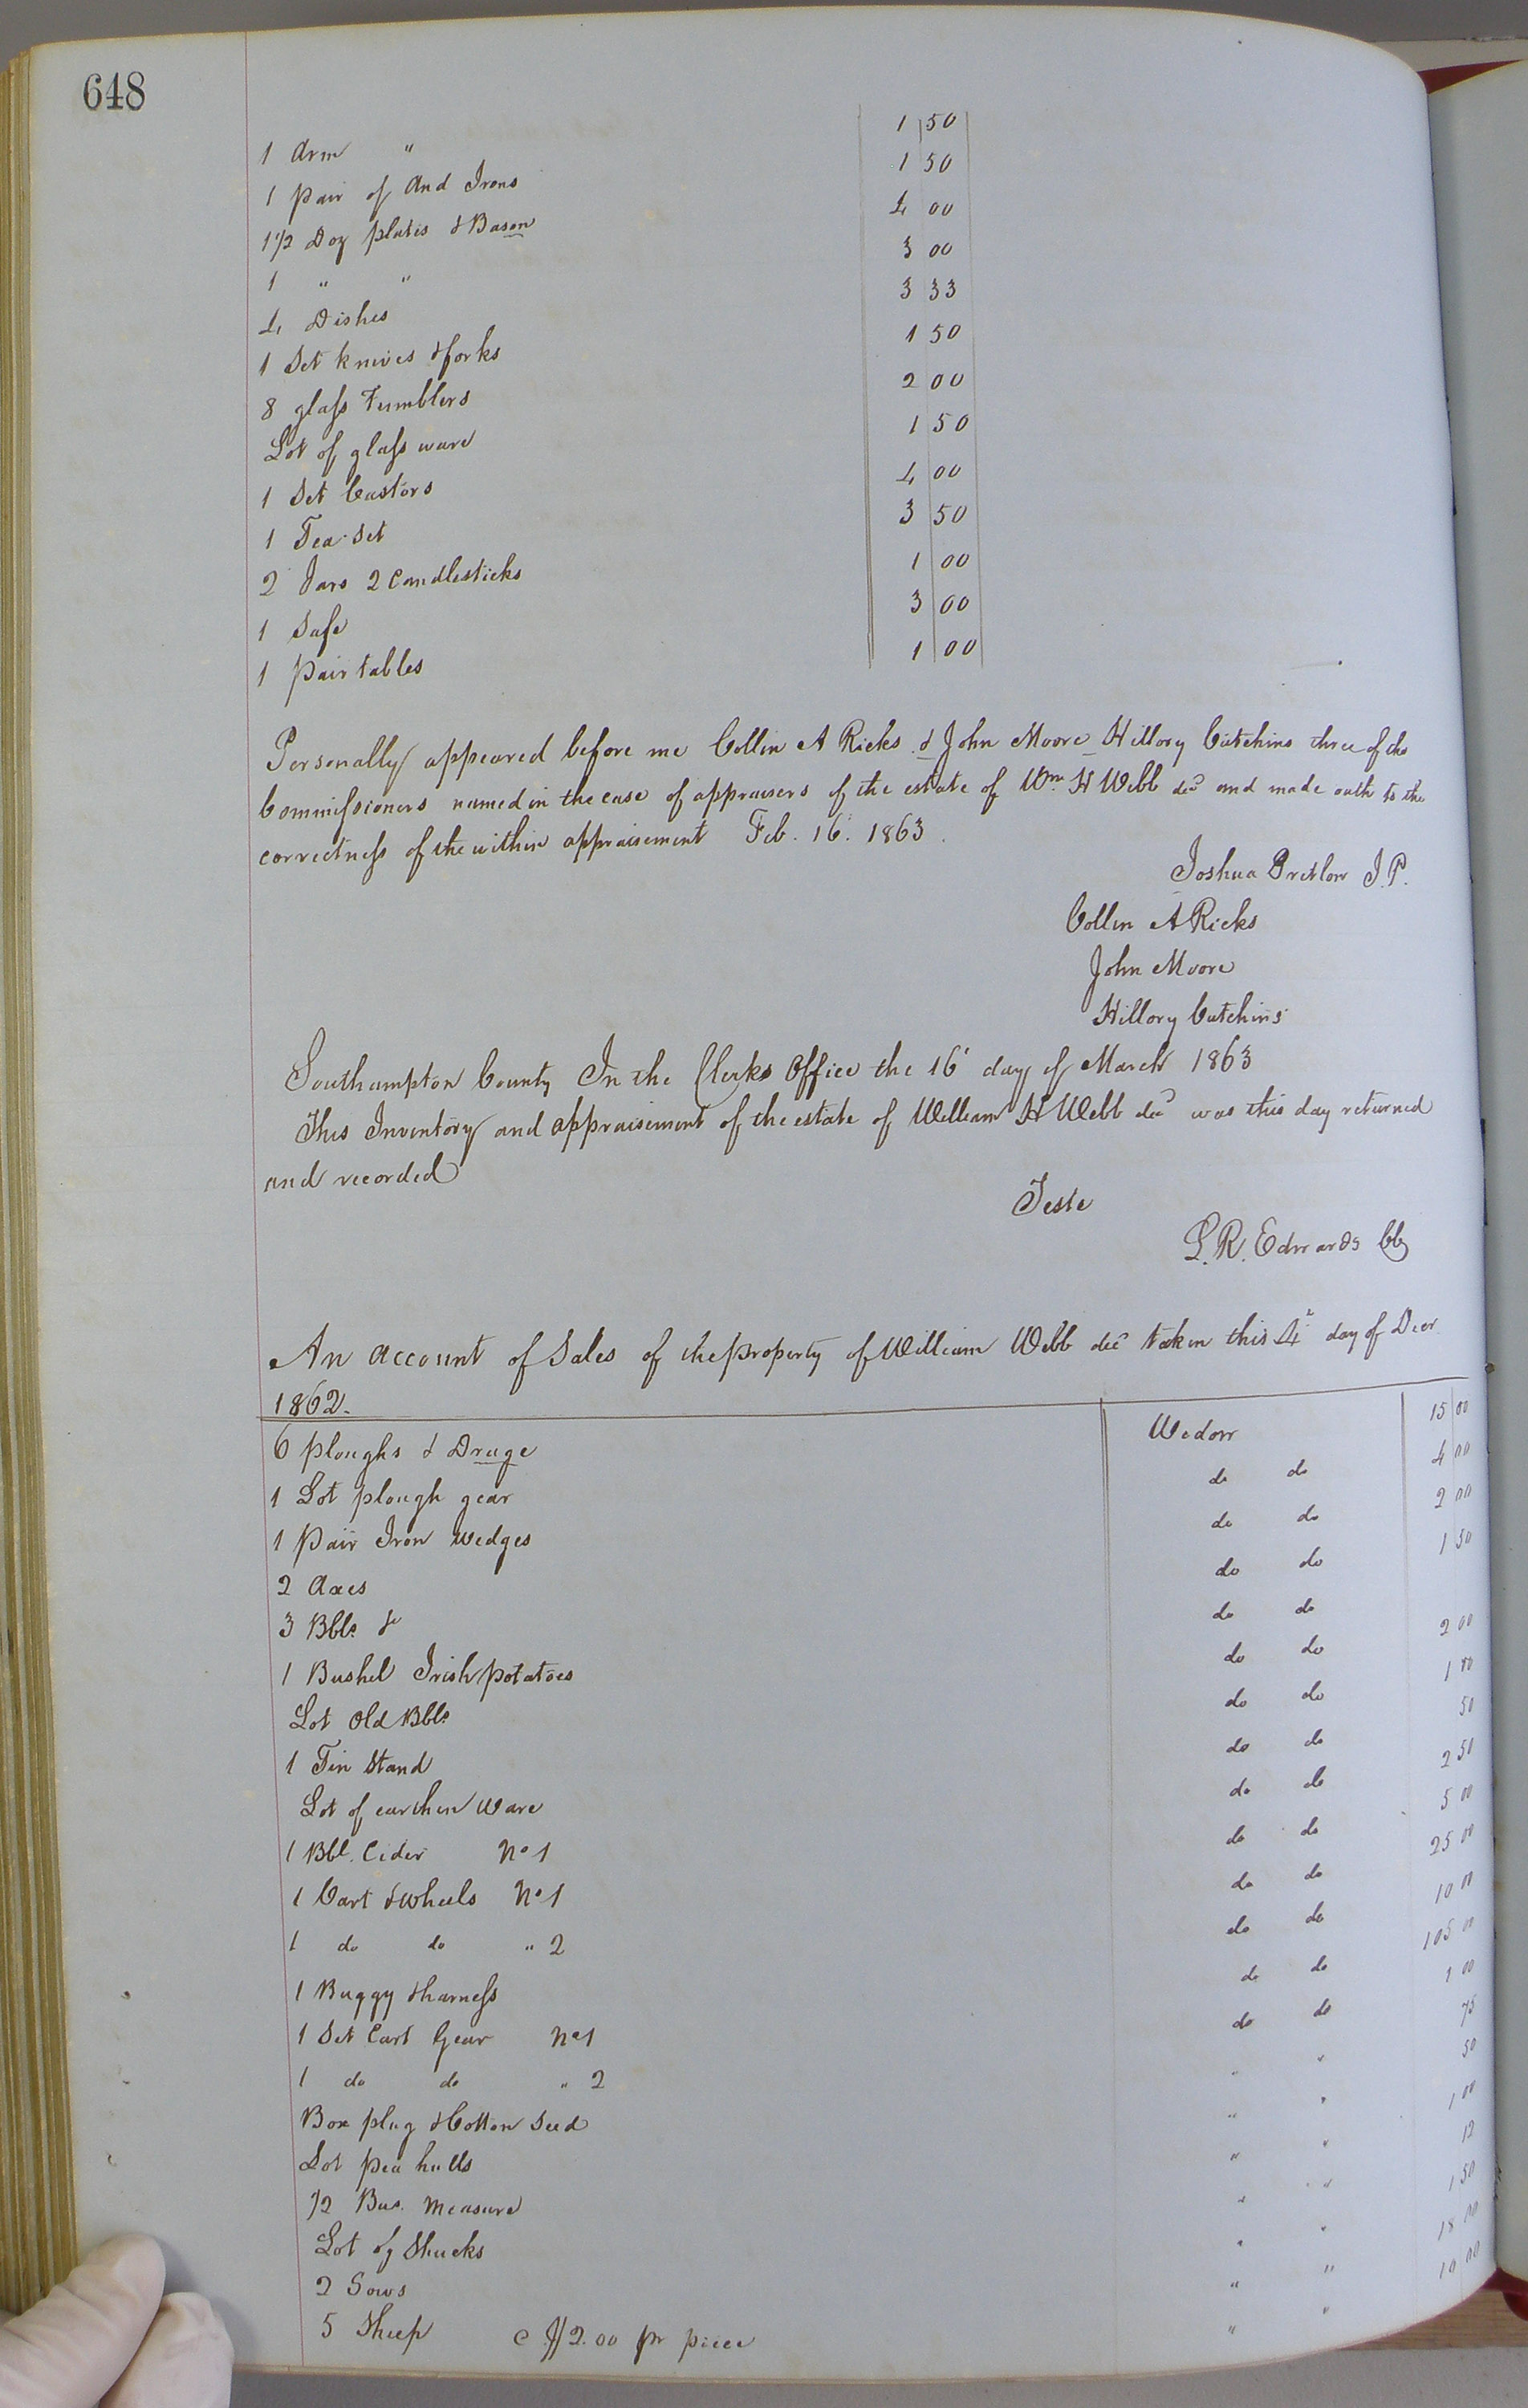 648
1 Arm " 1 50
1 pair of And Irons 1 50
1 1/2 Doz plates & Bason 4 00
1 " " 3 00
4 Dishes 3 33
1 Set knives & forks 1 50
8 glass Tumblers 2 00
Lot of glass ware 1 50
1 Set Castors 4 00
1 Tea Set 3 50
2 Jars 2 Candlesticks 1 00
1 Safe 3 00
1 pair tables 1 00
Personally appeared before me Collin A Ricks & John Moore Hillory Cutchins three of the
Commissioners named in the case of appraisers of the estate of Wm H Webb decd and made oath to the
correctness of the within appraisement Feb. 16. 1863.
Joshua Pretlow J.P.
Collin A Ricks
John Moore
Hillory Cutchins
Southampton County In the Clerks Office the 16 day of March 1863
This Inventory and appraisement of the estate of William H Webb decd was this day returned
and recorded
Teste
L. R. Edwards CC
An account of Sales of the property of William Webb decd taken this 4 day of Decr
1862.
6 ploughs & Druge Widow 15 00
1 Lot plough gear do do 4 00
1 Pair Iron Wedges do do 2 00
2 Axes do do 1 50
3 Bbls &c do do
1 Bushel Irish potatoes do do 2 00
Lot Old Bbls do do 1
1 Tin Stand do do 50
Lot of earthen Ware do do 2 50
1 Bbl. Cider No 1 do do 5 00
1 Cart & wheels No 1 do do 25 00
1 do do " 2 do do 10 00
1 Buggy & harness do do 105 00
1 Set Cart Gear No 1 do do 1 00
1 do do " 2 " " 75
Box plug & Cotton Seed " " 50
Lot pea hulls " " 1 00
1/2 Bus. Measure " " 12
Lot of Shucks " " 1 50
2 Sows " " 18 00
5 Sheep @ $2.00 pr piece " " 10 00